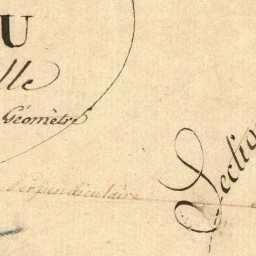 U
lle
Géomètre
Sectio
Perpendiculaire